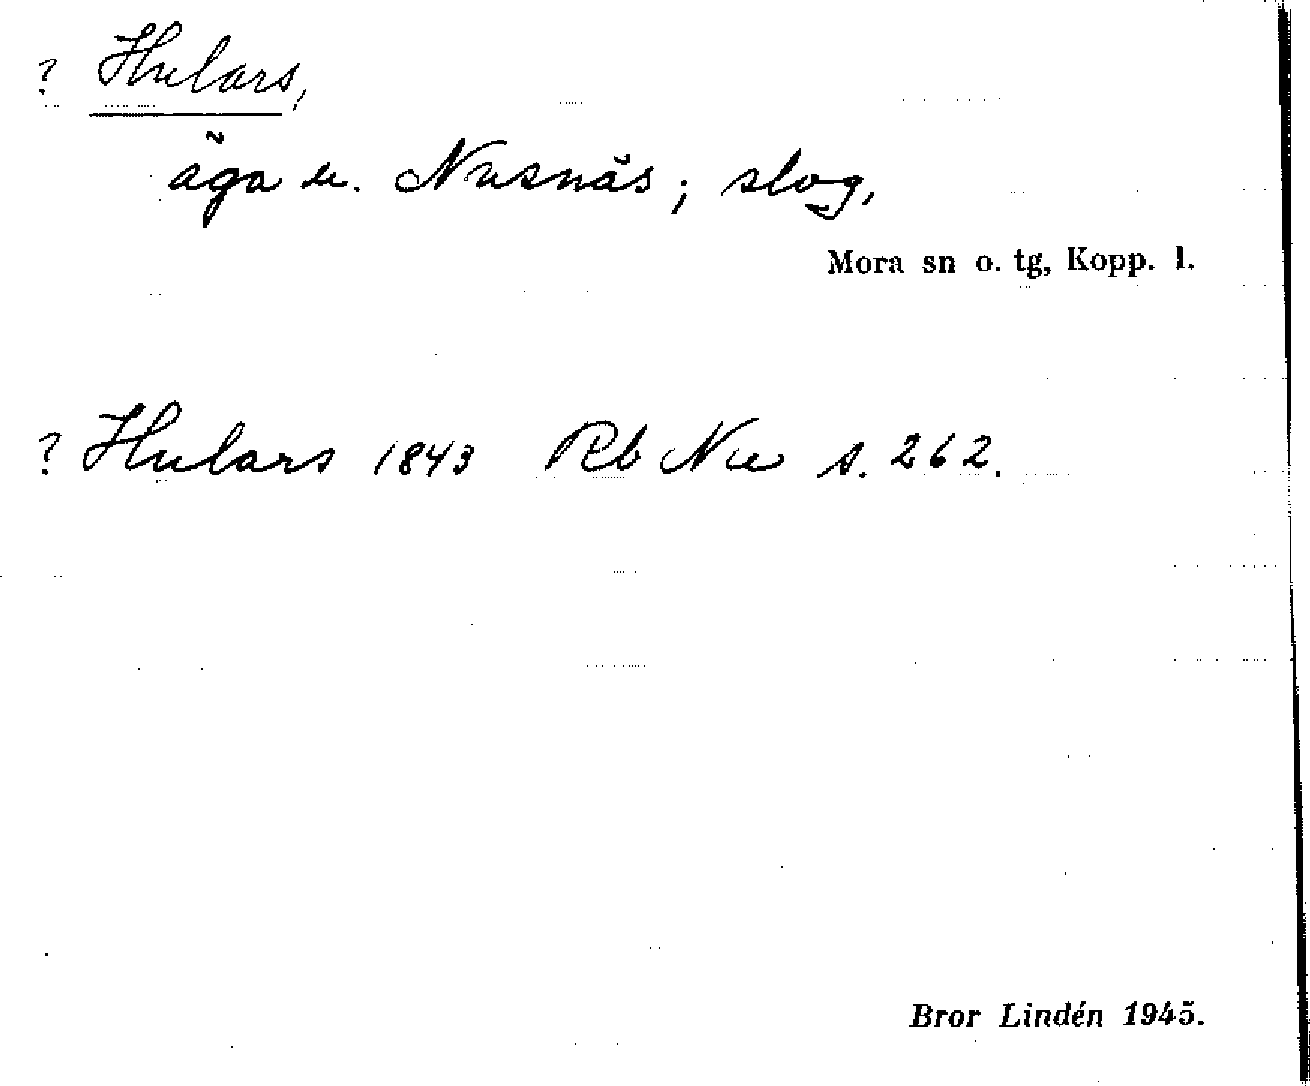 ? Hulars,
äga u. Nusnäs; slog,
Mora sn o. tg, Kopp. l.
? Hulars 1843 Rb Nu s. 262.
Bror Lindén 1945.